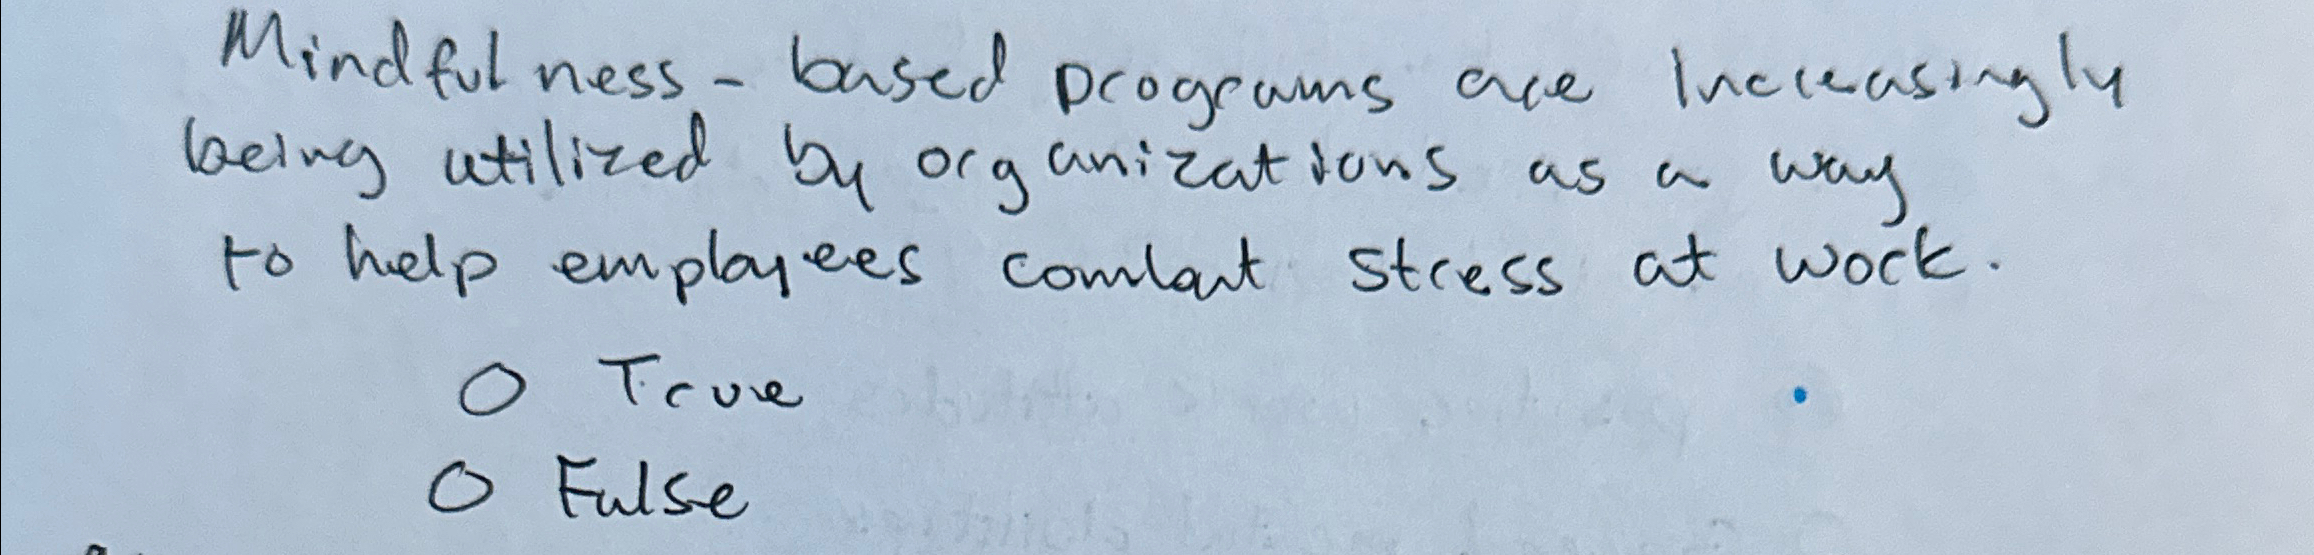 Mindfulness-based programs are increasingly
being utilized by organizations as a way
to help employees combat stress at work.
O True
O False